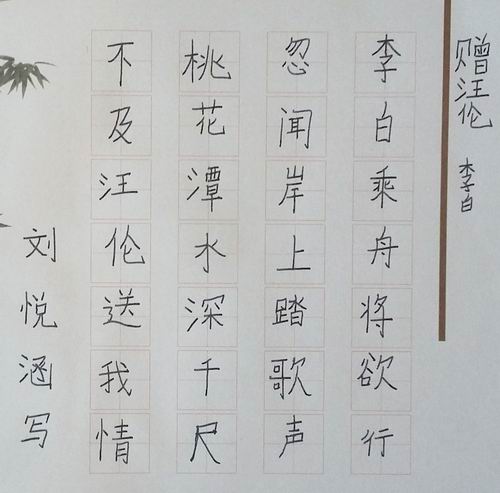 赠汪伦
李白
李白乘舟将欲行
忽闻岸上踏歌声
桃花潭水深千尺
不及汪伦送我情
刘悦涵写